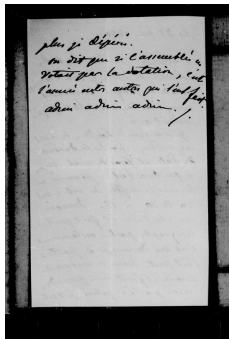 plus je dépéris.
on dit que si l'assemblée ne
votait pas la dotation, c'est
l'armée entre autres qui l'eut fait.
adieu adieu adieu.